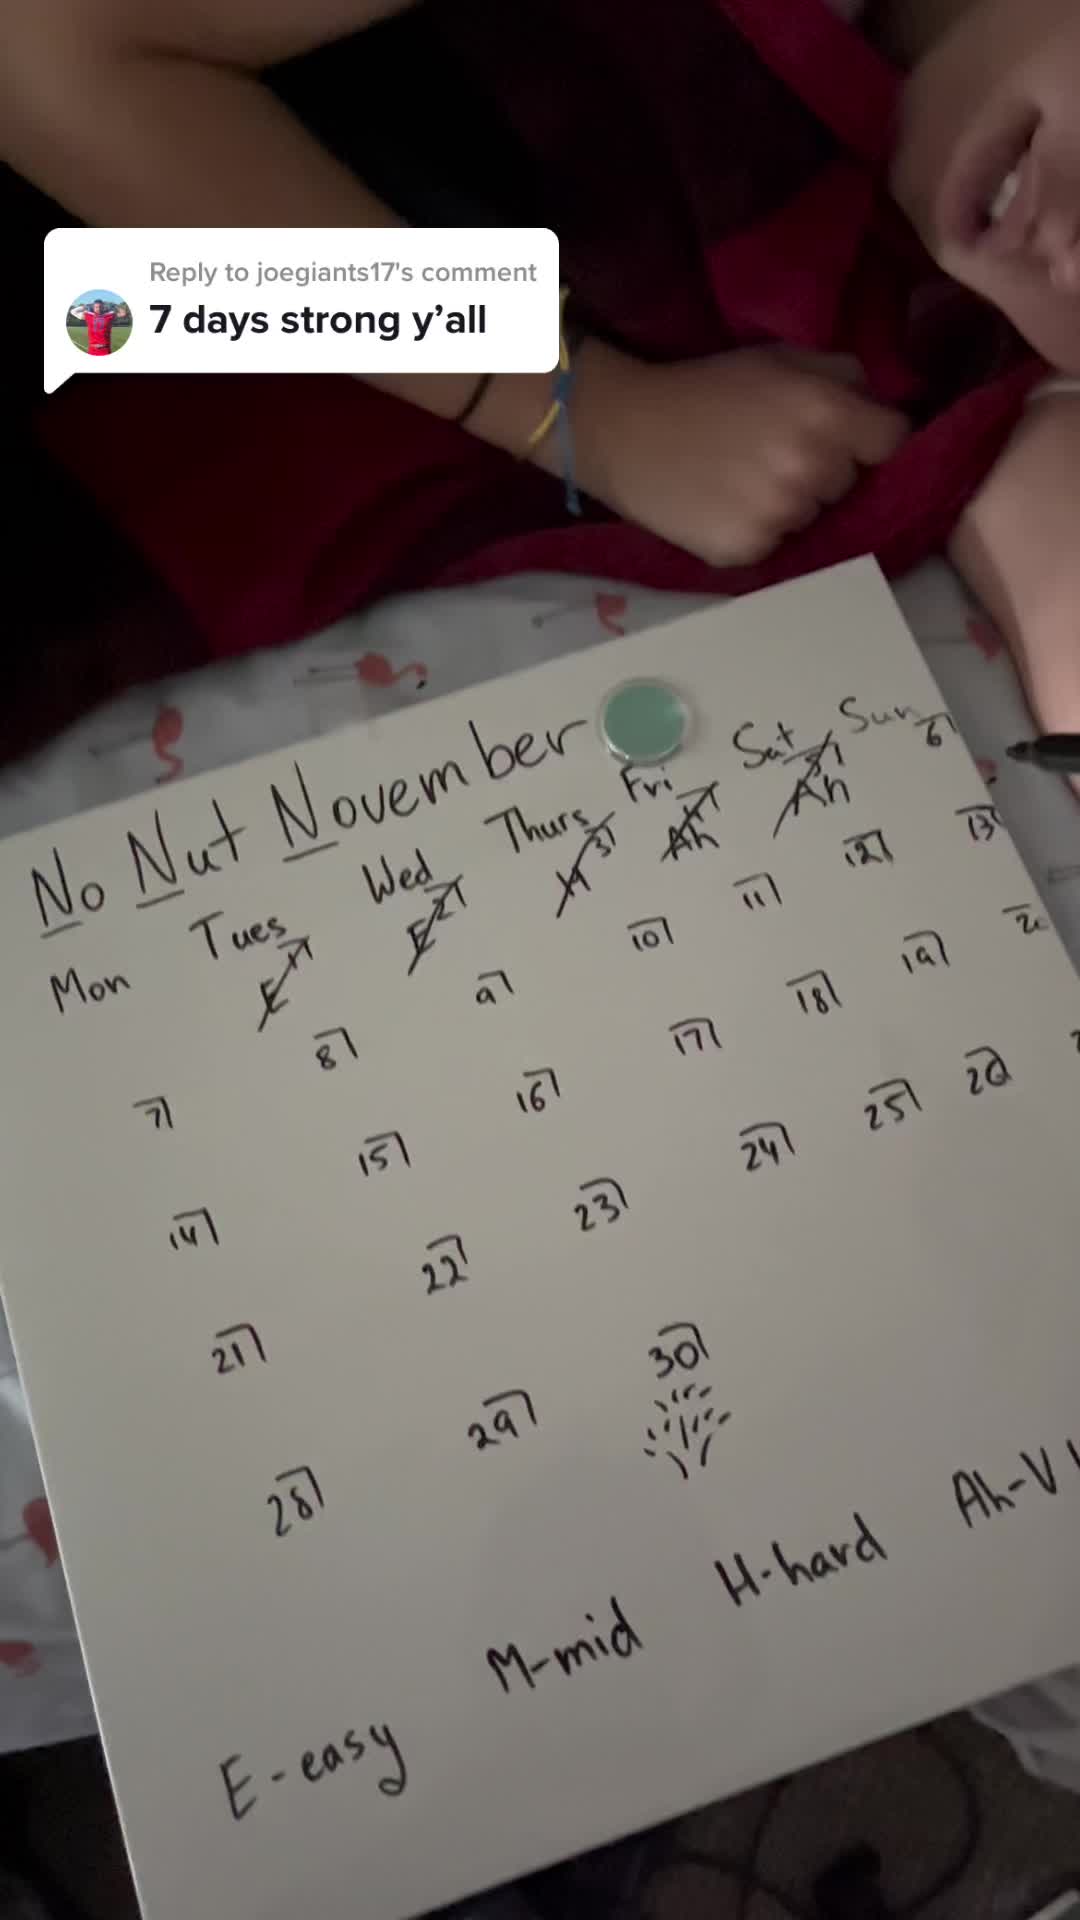 Reply to joegiants17's comment
7 days strong y'all
No Nut November
Mon Tues Wed Thurs Fri Sat Sun
1 2 3 4 5 6
E E H Ah Ah
7 8 9 10 11 12 13
14 15 16 17 18 19 20
21 22 23 24 25 26
28 29 30
E-easy M-mid H-hard Ah-V